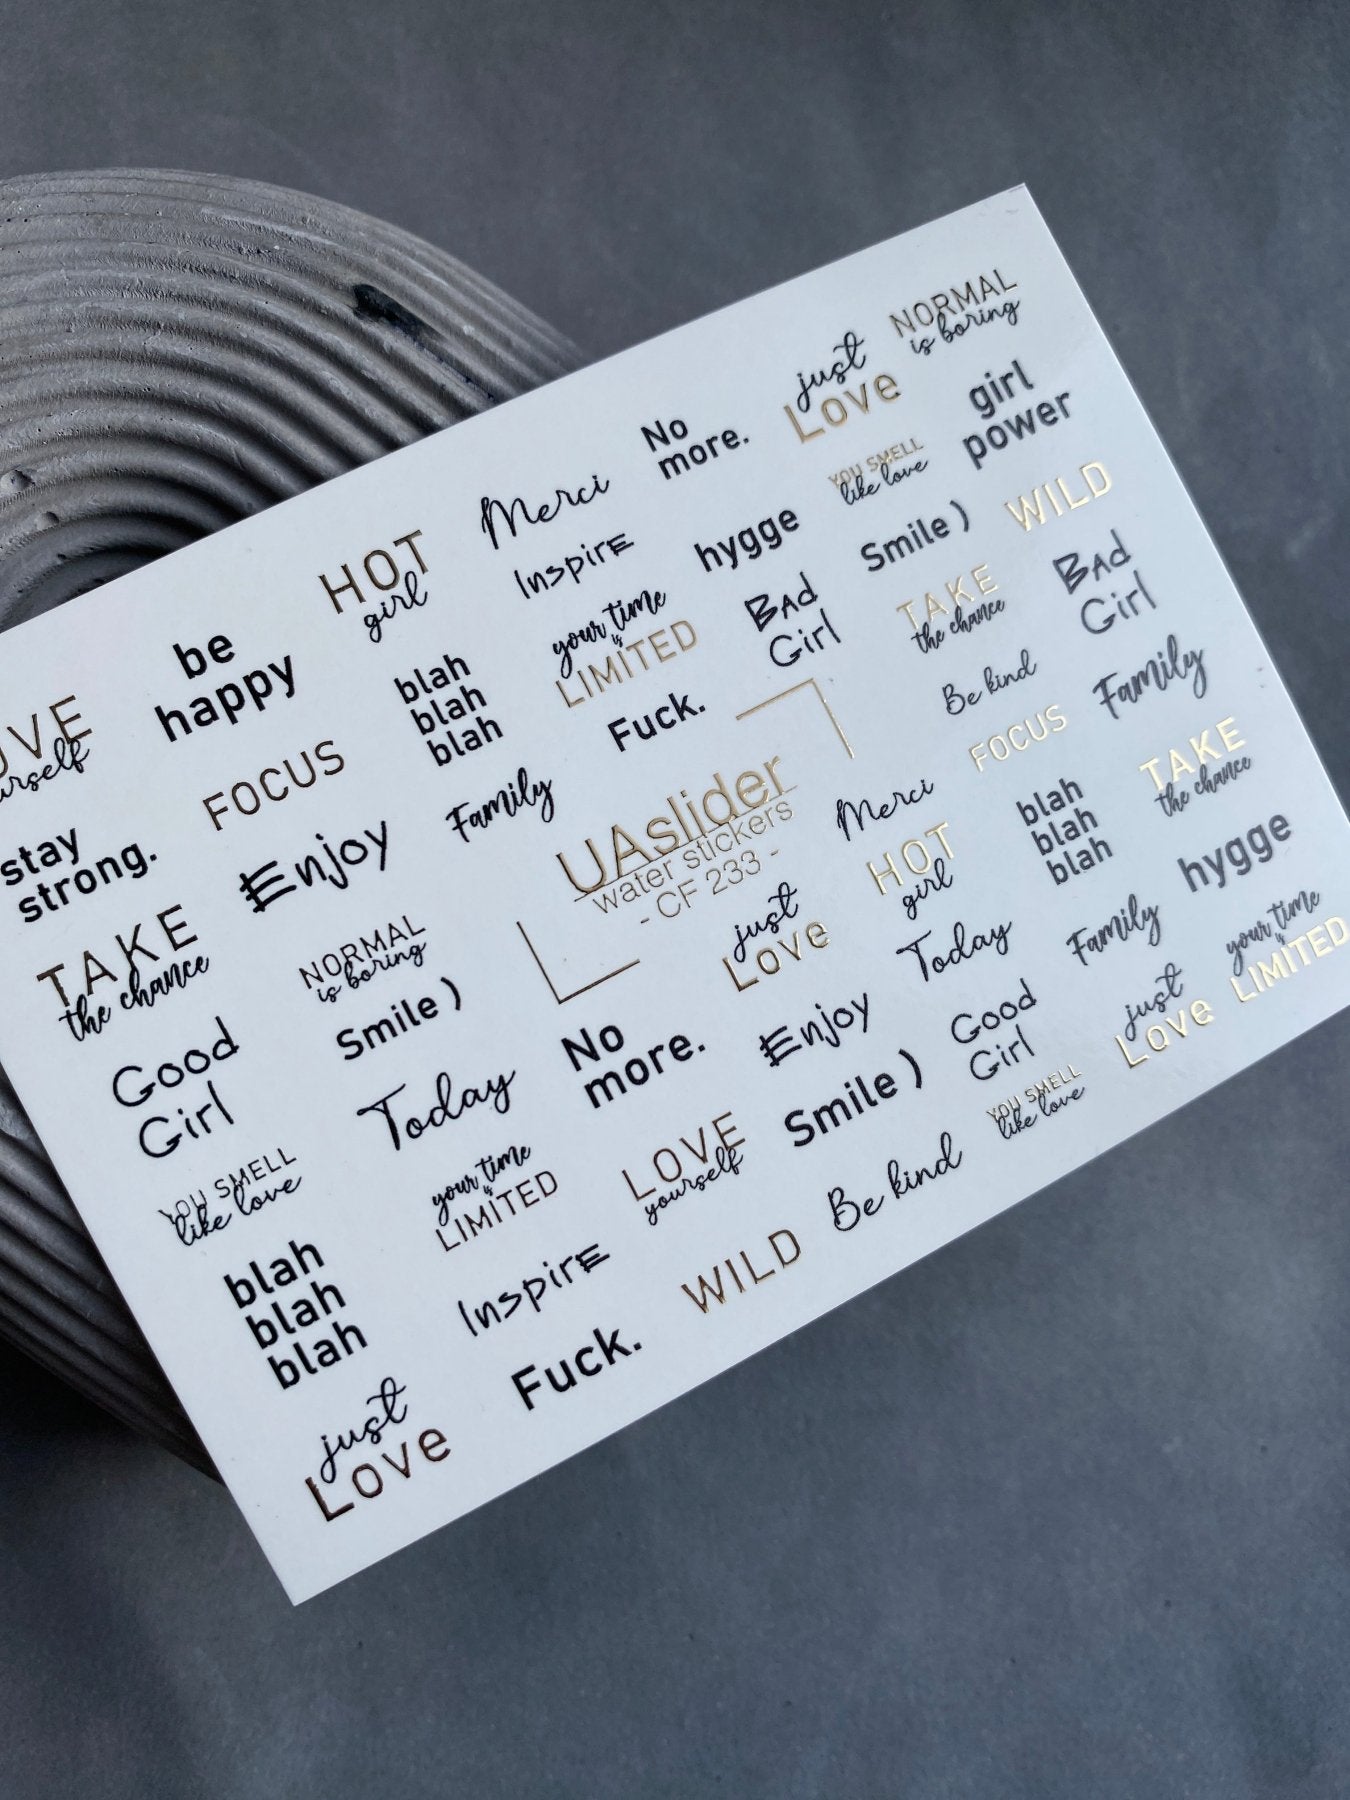 NORMAL
is boring
just
Love
girl
power
No
more.
YOU SMELL
like love
Merci
WILD
HOT
girl
Inspire
hygge
Smile )
BAD
Girl
be
happy
your time
is
LIMITED
BAD
Girl
TAKE
the chance
blah
blah
blah
Fuck.
Be kind
Family
FOCUS
Family
FOCUS
TAKE
the chance
stay
strong.
Enjoy
UAslider
water stickers
- CF 233 -
Merci
blah
blah
blah
hygge
HOT
girl
TAKE
the chance
NORMAL
is boring
just
Love
Today
Family
your time
is
LIMITED
Smile )
Good
Girl
No
more.
Enjoy
Good
Girl
just
Love
Today
Smile )
YOU SMELL
like love
YOU SMELL
like love
your time
is
LIMITED
LOVE
yourself
Be kind
blah
blah
blah
Inspire
WILD
Fuck.
just
Love